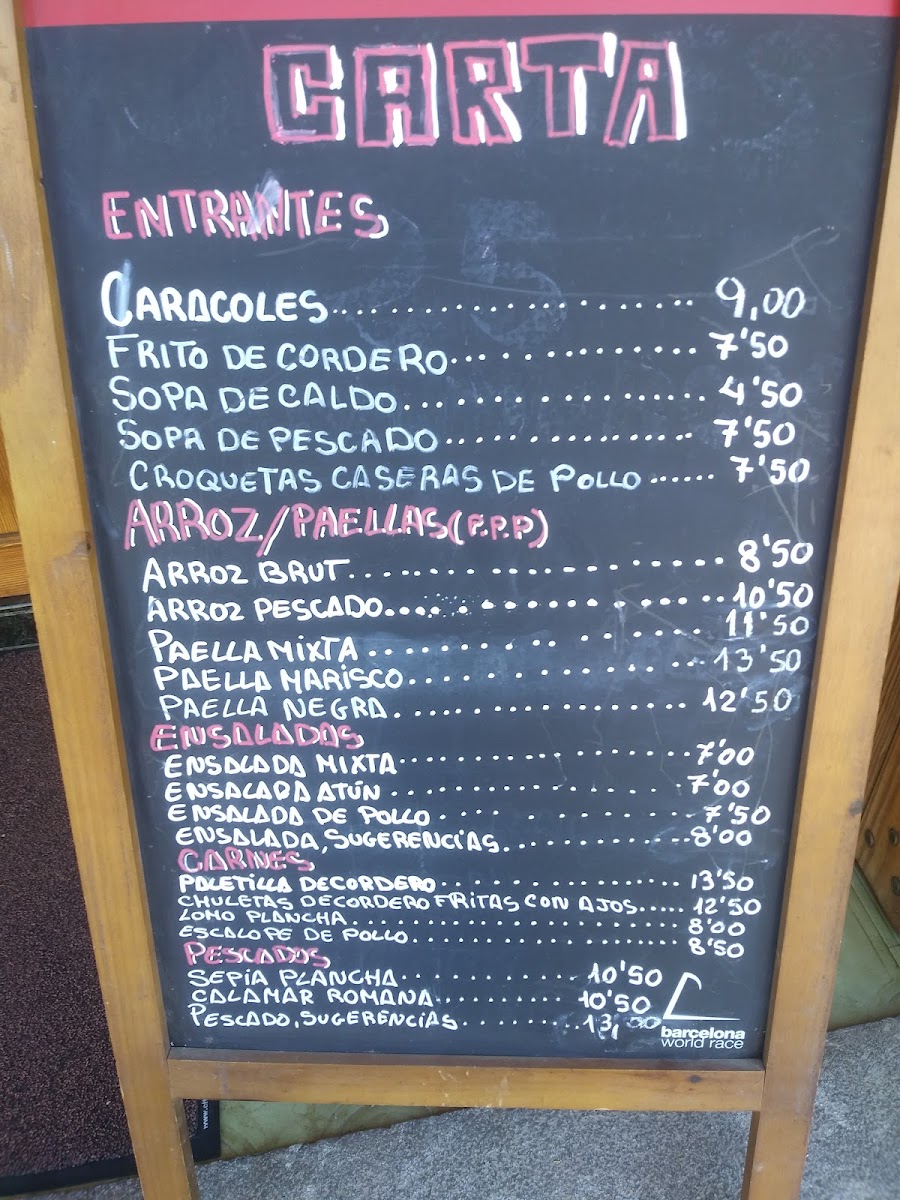 CARTA
ENTRANTES
CARACOLES........................ 9,00
FRITO DE CORDERO................ 7'50
SOPA DE CALDO................... 4'50
SOPA DE PESCADO................. 7'50
CROQUETAS CASERAS DE POLLO...... 7'50
ARROZ/PAELLAS (P.P.P)
ARROZ BRUT....................... 8'50
ARROZ PESCADO.................... 10'50
PAELLA MIXTA..................... 11'50
PAELLA MARISCO................... 13'50
PAELLA NEGRA..................... 12'50
ENSALADAS
ENSALADA MIXTA................... 7'00
ENSALADA ATÚN.................... 7'00
ENSALADA DE POLLO................ 7'50
ENSALADA, SUGERENCIAS............ 8'00
CARNES
PALETILLA DE CORDERO............. 13'50
CHULETAS DE CORDERO FRITAS CON AJOS..... 12'50
LOMO PLANCHA..................... 8'00
ESCALOPE DE POLLO................ 8'50
PESCADOS
SEPIA PLANCHA............ 10'50
CALAMAR ROMANA........... 10'50
PESCADO, SUGERENCIAS......... 13,
barcelona
world race